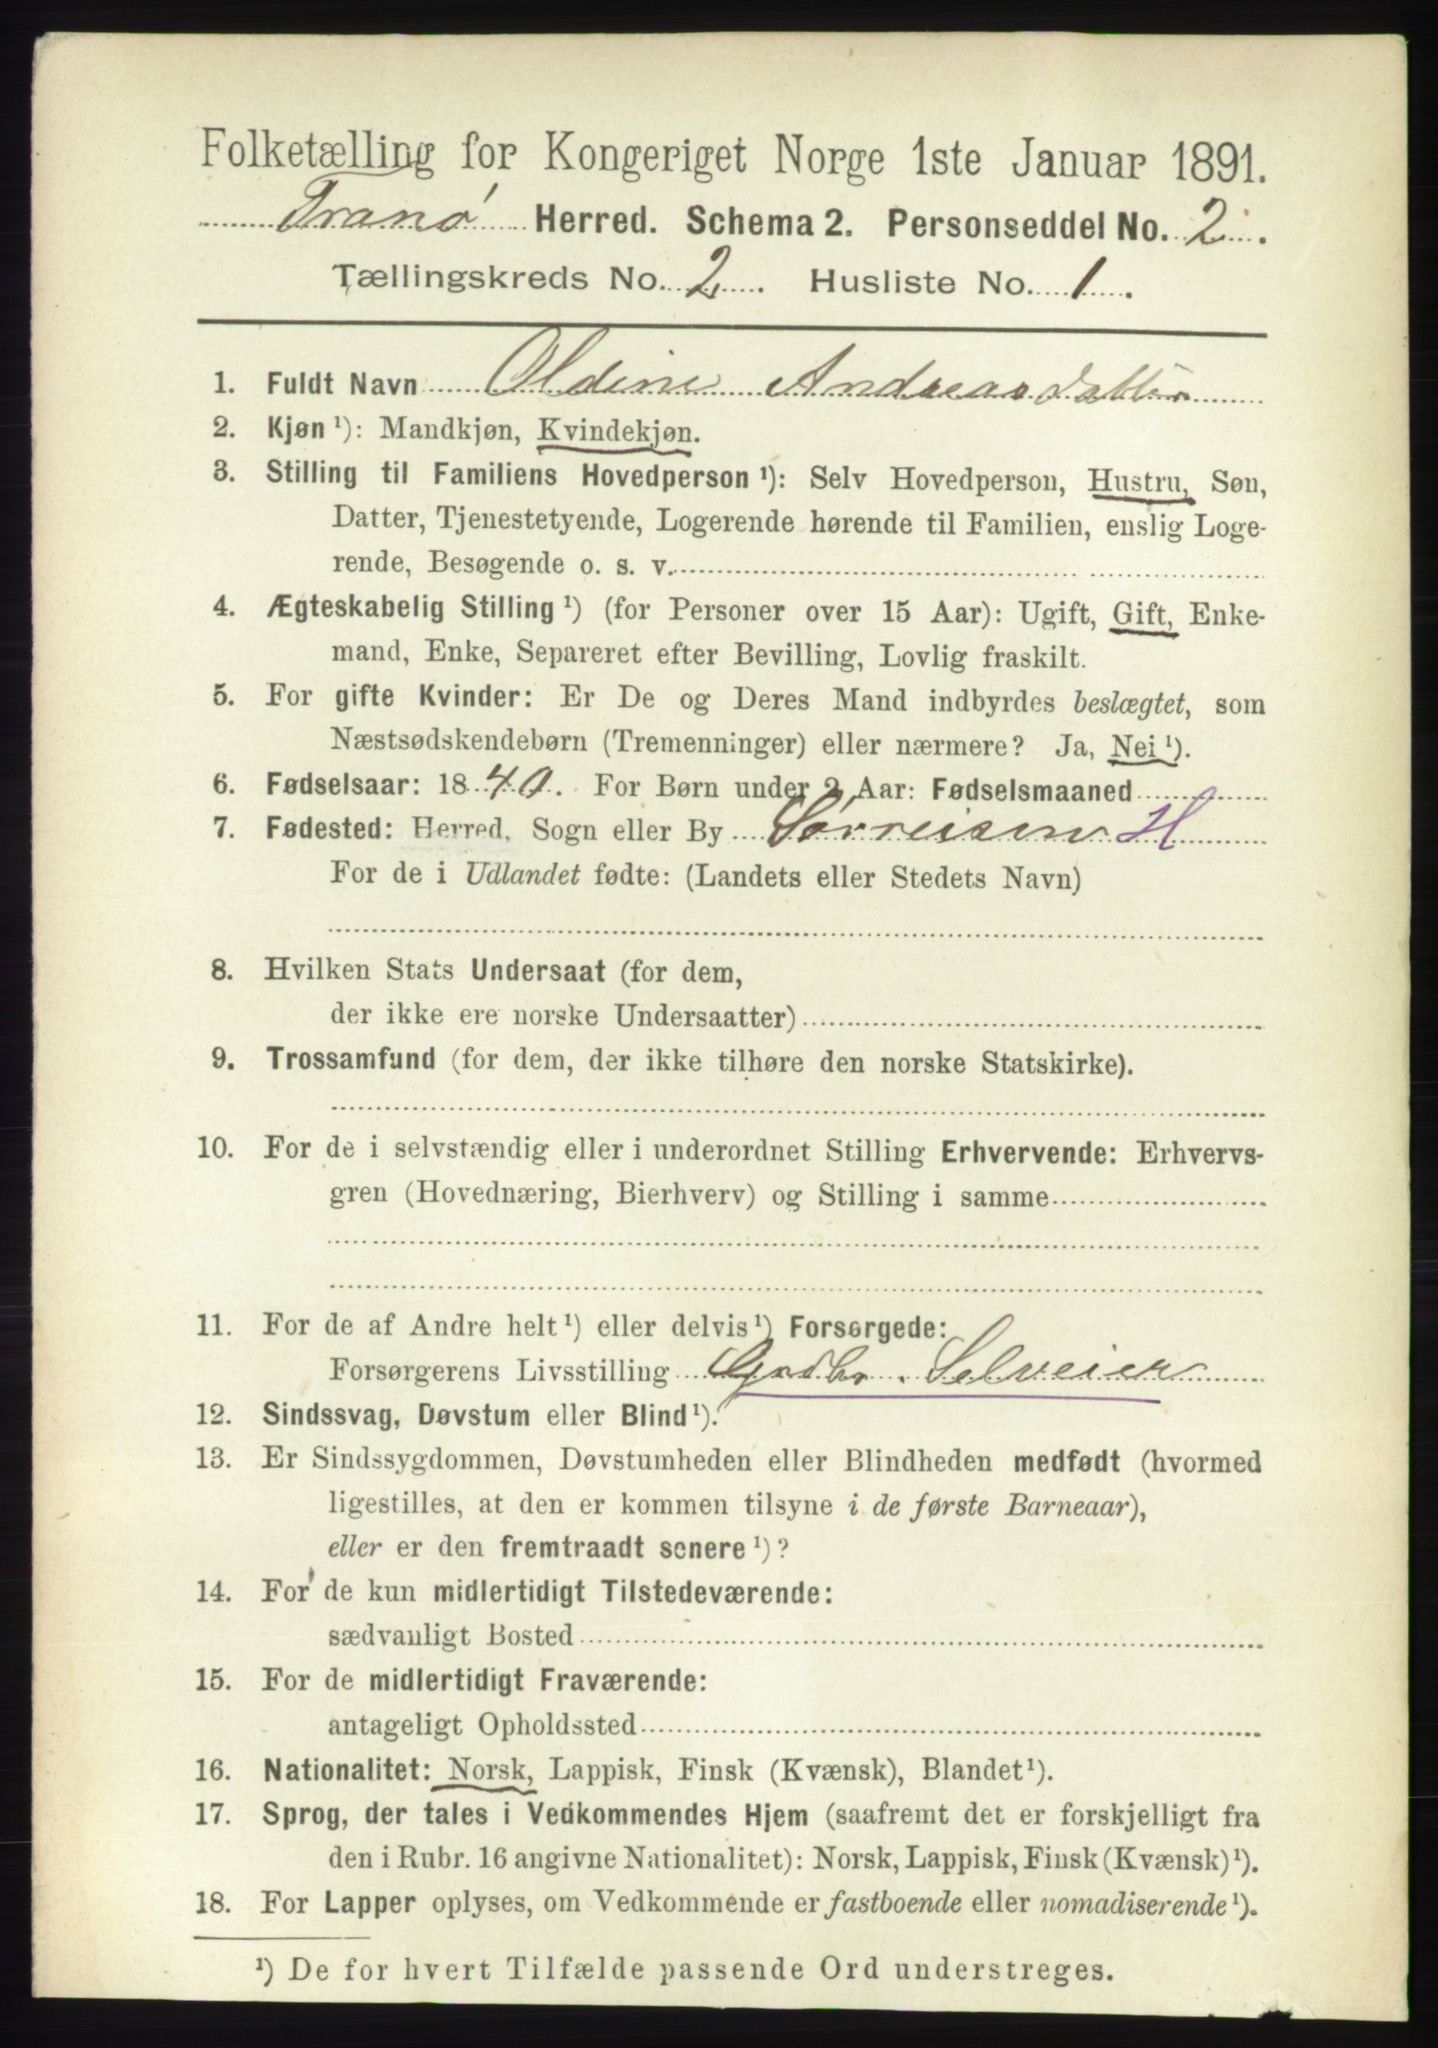 Folketælling for Kongeriget Norge 1ste Januar 1891.
Tranø Herred. Schema 2. Personseddel No. 2.
Tællingskreds No. 2. Husliste No. 1.
1. Fuldt Navn Oldine Andreasdatter
2. Kjøn ¹): Mandkjøn, Kvindekjøn.
3. Stilling til Familiens Hovedperson ¹): Selv Hovedperson, Hustru, Søn,
Datter, Tjenestetyende, Logerende hørende til Familien, enslig Loge-
rende, Besøgende o. s. v.
4. Ægteskabelig Stilling ¹) (for Personer over 15 Aar): Ugift, Gift, Enke-
mand, Enke, Separeret efter Bevilling, Lovlig fraskilt.
5. For gifte Kvinder: Er De og Deres Mand indbyrdes beslægtet, som
Næstsødskendebørn (Tremenninger) eller nærmere? Ja, Nei ¹).
6. Fødselsaar: 1840. For Børn under 2 Aar: Fødselsmaaned
7. Fødested: Herred, Sogn eller By Sørreisen H
For de i Udlandet fødte: (Landets eller Stedets Navn)
8. Hvilken Stats Undersaat (for dem,
der ikke ere norske Undersaatter)
9. Trossamfund (for dem, der ikke tilhøre den norske Statskirke).
10. For de i selvstændig eller i underordnet Stilling Erhvervende: Erhvervs-
gren (Hovednæring, Bierhverv) og Stilling i samme
11. For de af Andre helt ¹) eller delvis ¹) Forsørgede:
Forsørgerens Livsstilling Gadbr. Selveier
12. Sindssvag, Døvstum eller Blind ¹).
13. Er Sindssygdommen, Døvstumheden eller Blindheden medfødt (hvormed
ligestilles, at den er kommen tilsyne i de første Barneaar),
eller er den fremtraadt senere ¹)?
14. For de kun midlertidigt Tilstedeværende:
sædvanligt Bosted
15. For de midlertidigt Fraværende:
antageligt Opholdssted
16. Nationalitet: Norsk, Lappisk, Finsk (Kvænsk), Blandet ¹).
17. Sprog, der tales i Vedkommendes Hjem (saafremt det er forskjelligt fra
den i Rubr. 16 angivne Nationalitet): Norsk, Lappisk, Finsk (Kvænsk) ¹).
18. For Lapper oplyses, om Vedkommende er fastboende eller nomadiserende ¹).
¹) De for hvert Tilfælde passende Ord understreges.